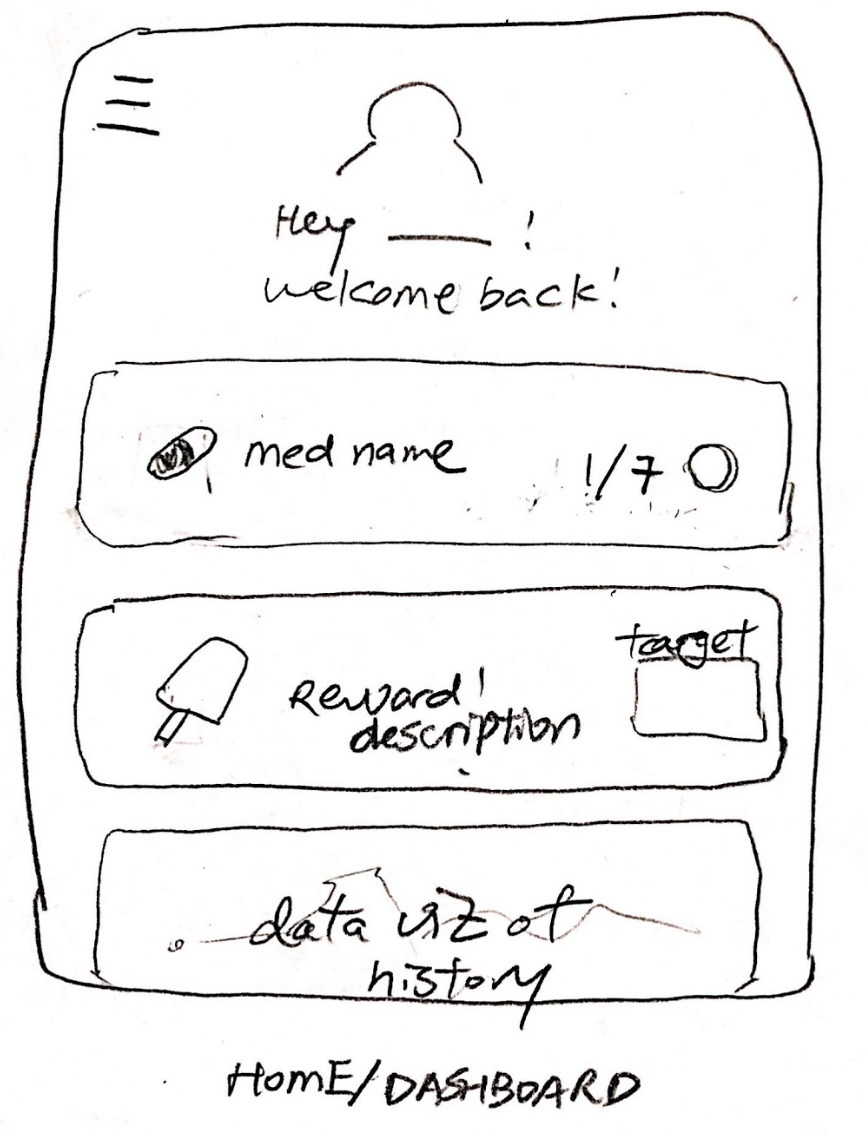 Hey ____ !
welcome back!
med name 1/7
target
Reward!
description
data viz of
history
HOME/DASHBOARD